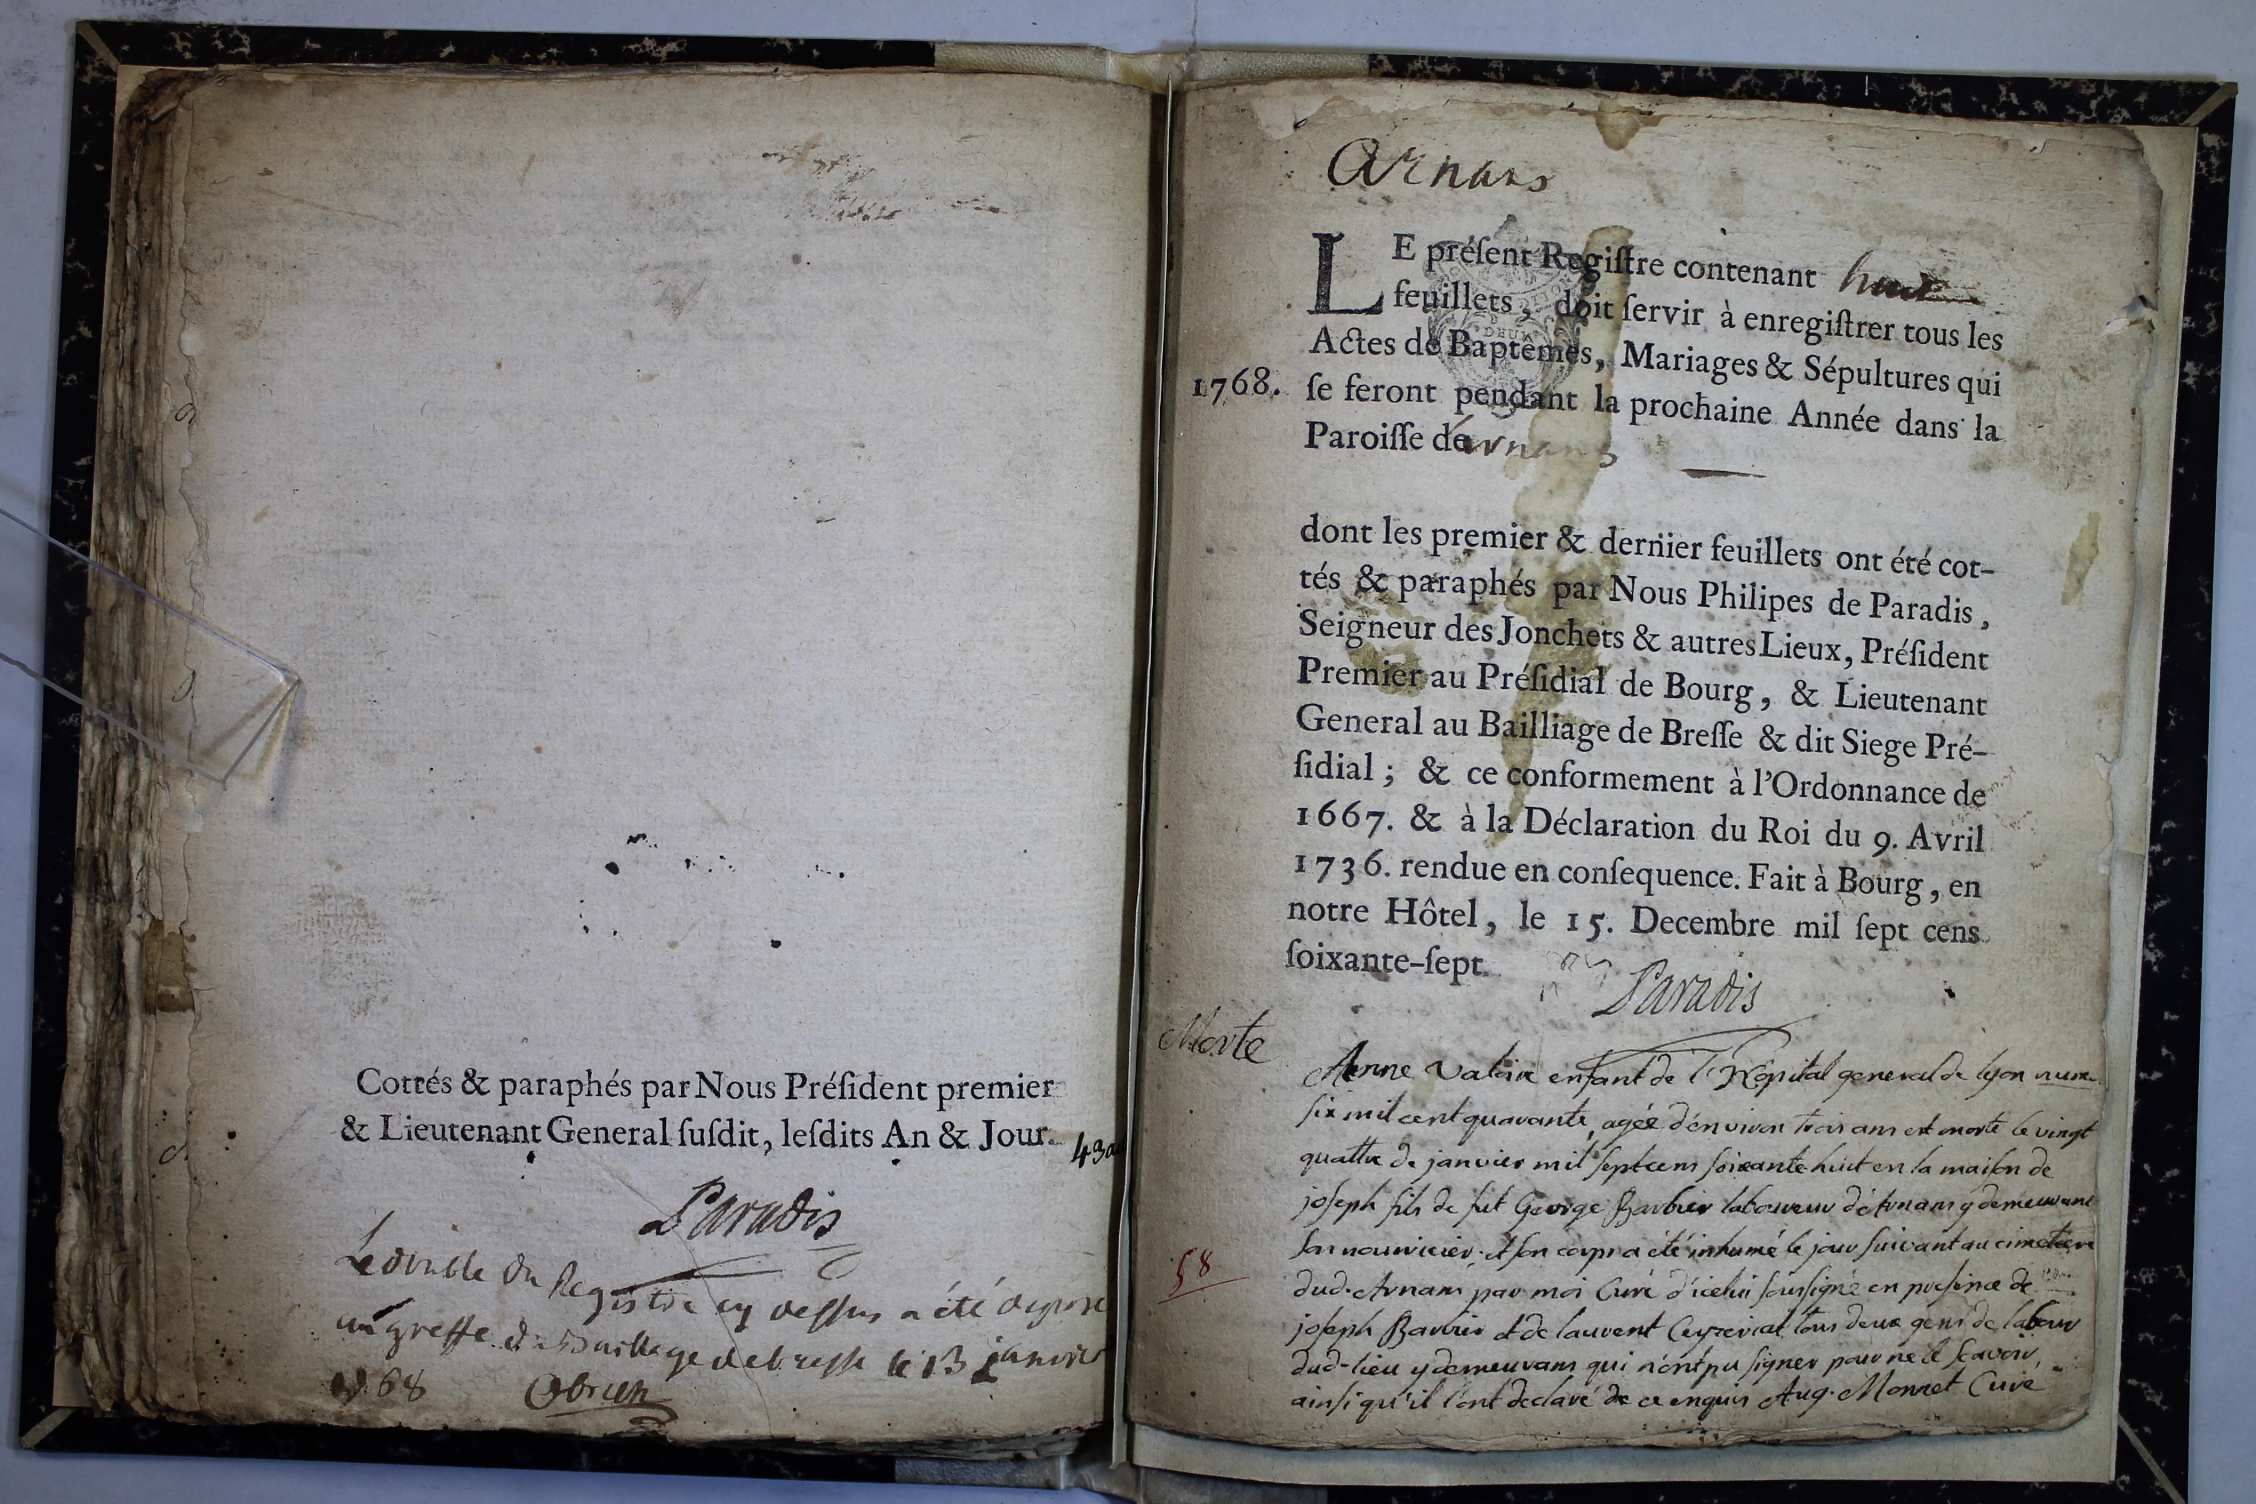 Cottés & paraphés par Nous Préſident premier
& Lieutenant General ſuſdit, leſdits An & Jour.
Paradis
Le double du Registre cy dessus a été deposé
au greffe du Bailliage de bresse le 13 janvier
1768 Obrien
Arnans
LE préſent Regiſtre contenant huit
feuillets, doit ſervir à enregiſtrer tous les
Actes de Baptêmes, Mariages & Sépultures qui
1768. ſe feront pendant la prochaine Année dans la
Paroiſſe de Arnans
dont les premier & dernier feuillets ont été cot-
tés & paraphés par Nous Philipes de Paradis,
Seigneur des Jonchets & autres Lieux, Préſident
Premier au Préſidial de Bourg, & Lieutenant
General au Bailliage de Breſſe & dit Siege Pré-
ſidial; & ce conformement à l'Ordonnance de
1667. & à la Déclaration du Roi du 9. Avril
1736. rendue en conſequence. Fait à Bourg, en
notre Hôtel, le 15. Decembre mil ſept cens
ſoixante-ſept.
Paradis
Morte
Anne Valoire enfant de l'Hôpital general de lyon nume.
six mil cent quarante, agée d'environ trois ans est morte le vingt
quattre de janvier mil sept cens soixante huit en la maison de
joseph fils de fut George Barbier laboureur d'Arnans y demeurant
son nourricier. et son corps a été inhumé le jour suivant au cimetiere
58
dud. Arnans par moi Curé d'icelui soussigné en presence de
joseph Barbier et de laurent Ceyzeriat tous deux gens de labour
dud-lieu y demeurans qui n'ont pu signer pour ne le scavoir,
ainsi qu'il l'ont declaré de ce enquis Aug. Monnet Curé